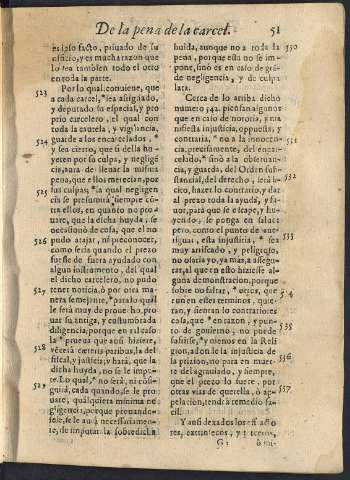 De la pena de la carcel. 51
es ipso facto, priuado de su
oficio, y es mucha razon que
lo sea tambien todo el otro
en toda la parte.
523 Por lo qual conuiene, que
a cada carcel, *sea asignado,
y deputado su especial, y pro
prio carcelero, el qual con
toda la cautela, y vigilancia,
524 guarde a los encarcelados, *
y sea cierto, que si della hu-
yeren por su culpa, y negligē
cia, aura de lleuar la misma
pena, que ellos merecian, por
525 sus culpas; *la qual negligen
cia se presumirà siempre cō-
tra ellos, en quanto no pro-
uare, que la dicha huyda, se
ocasionò de cosa, que el no
526 pudo atajar, ni preconocer,
como seria quando el prezo
fuesse de fuera ayudado con
algun instrumento, del qual
el dicho carcelero, no pudo
527 tener noticia, ò por otra ma
nera semejante, *para lo qual
le serà muy de prouecho, pro
uar su antiga, y costumbrada
diligencia, porque en tal caso
528 la * prueua que assi hiziere,
vēcerà
fiscal, y justicia, y harà, que la
dicha huyda, no se le impu-
529 te. Lo qual, * no serà, ni cōsi-
guirà, cada quando, se le pro
uare, qualquiera minima ne
gligencia, porque preuando-
sele, se le aurà necessariamen-
te, de imputar la sobredicha
huida, aunque no a toda la 530
pena, porque esta no se im-
pone, sinò es en caso de grā-
de negligencia, y de culpa
lata.
Cerca de lo arriba dicho
numero 542. piensan algunos
que en caso de notoria, y ma
nifiesta injusticia, oppuesta, y
contraria, * no a la innocen- 531
cia, precisamente, del encar-
celado, * sinò a la obseruan- 532
cia, y guarda, del Orden sub-
stancial, del derecho, serà li-
cito, hazer lo contrario, y dar
al prezo toda la ayuda, y fa-
uor, paraque se escape, y hu-
yendo, se ponga en saluo:
pero, como el punto de aue-
riguar, esta injusticia, * sea 533
muy arriscado, y peligroso,
no osaria yo, ya màs, a assegu-
rar, al que en esto hiziesse al-
guna demonstracion, porque
sobre no faltar, * otros, que 534
run en estos terminos, quie-
ran, y sientan lo contrario es
cosa, que * en razon, y pun- 535
to de gouierno, no puede
sufrirse, * y menos en la Reli
gion, adon de la injusticia de 536
la prizion, no para en muer-
te del agrauiado, y siempre,
que el prezo lo fuere, por
otras vias de querella, ò ape- 537
lacion, tendrà remedio fa-
cil.
Y ansi dexados los casos
res, extrinsecos, y
G3 ò mi-